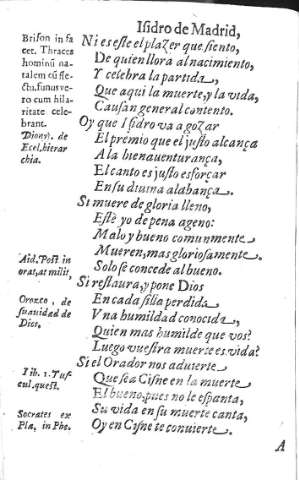 Isidro de Madrid,
Ni es este el plazer que siento,
De quien llora al nacimiento,
Y celebra la partida,
Que aqui la muerte, y la vida,
Causan general contento.
Oy que Isidro va a gozar
El premio que el justo alcança
A la bienauenturança,
El canto es justo esforçar
En su diuina alabança.
Si muere de gloria lleno,
Estè yo de pena ageno:
Malo y bueno comunmente
Mueren, mas gloriosamente
Solo se concede al bueno.
Si restaura, y pone Dios
En cada silla perdida
Vna humildad conocida,
Quien mas humilde que vos?
Luego vuestra muerte es vida?
Si el Orador nos aduierte
Que sea Cisne en la muerte
El bueno, pues no le espanta,
Su vida en su muerte canta,
Oy en Cisne te conuierte.
A
Brison in fa
cet. Thraces
hominũ na-
talem cũ fle-
ctu, funus ve-
ro cum hila-
ritate cele-
brant.
Dionys. de
Ecel. hierar
chia.
Aid. Post in
orat, at milit,
Oronzo, de
suauidad de
Dios.
Lib. 1. Tus
cul. quest.
Socrates ex
Pla, in Phe.